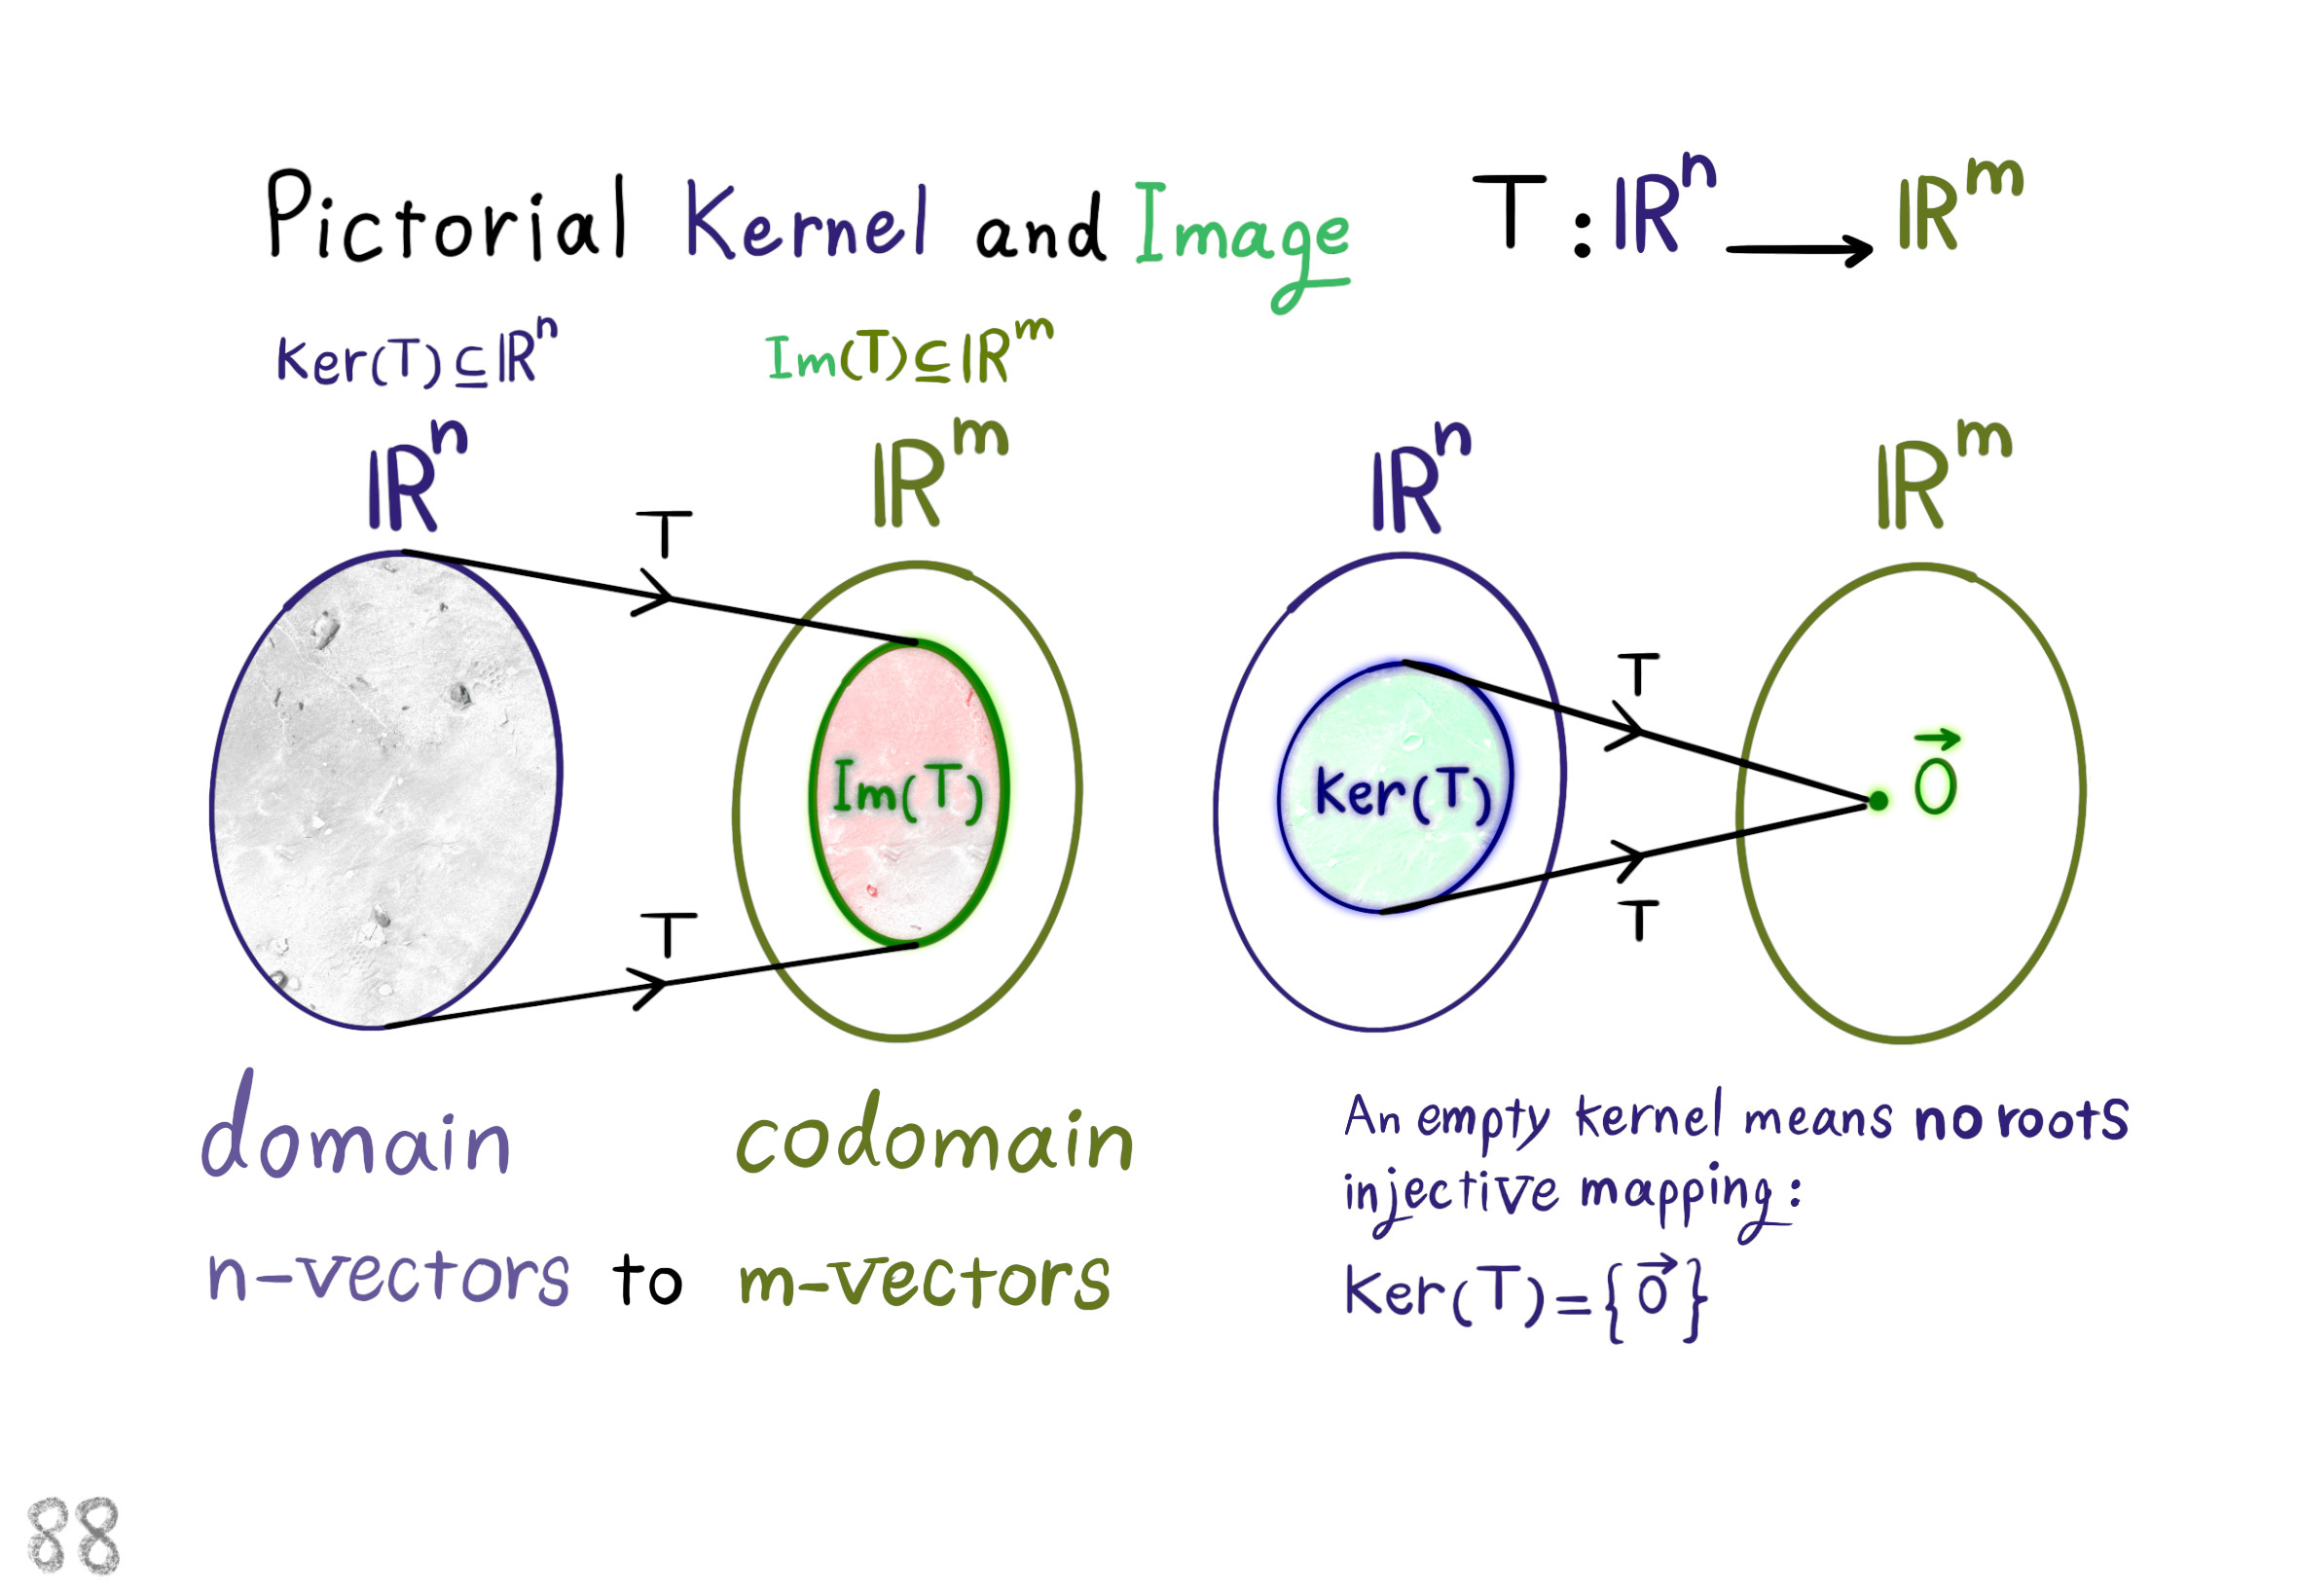 Pictorial Kernel and Image T : ℝⁿ ⟶ ℝᵐ
Ker(T) ⊆ ℝⁿ Im(T) ⊆ ℝᵐ
ℝⁿ ℝᵐ ℝⁿ ℝᵐ
T
T
Im(T) Ker(T) 0⃗
T T
domain codomain
n-vectors to m-vectors
An empty kernel means no roots
injective mapping:
Ker(T)={0⃗}
88